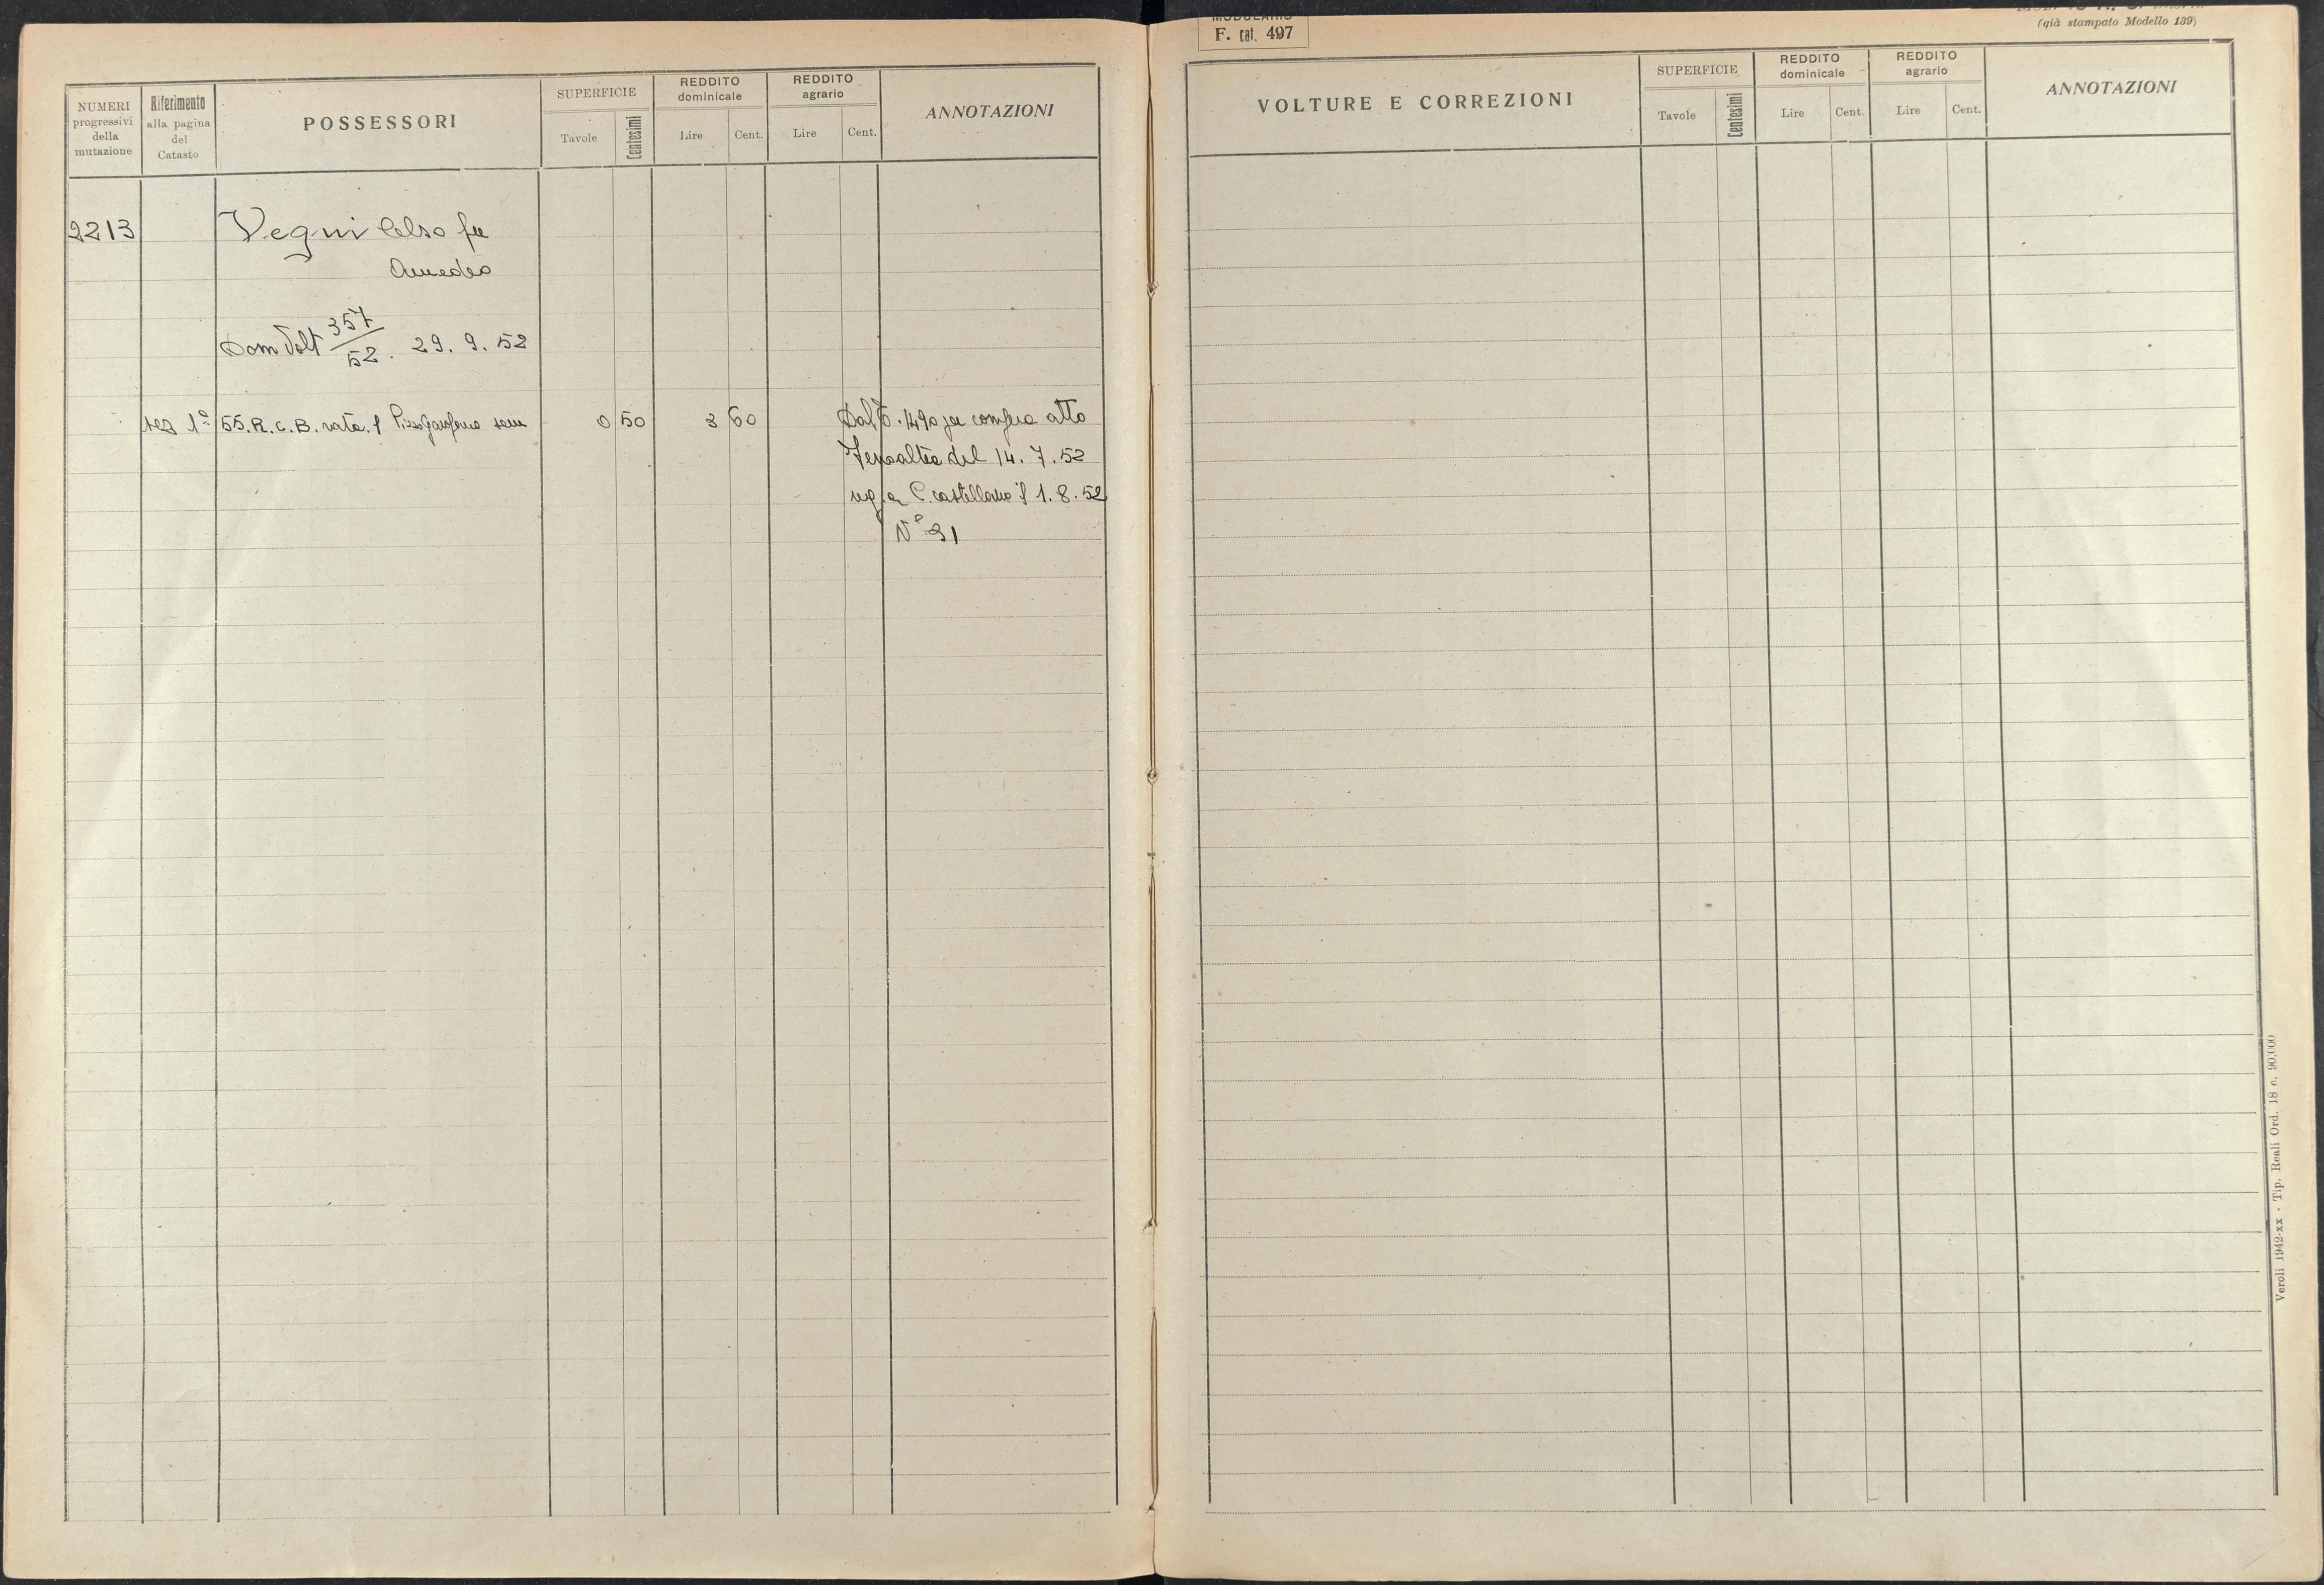 NUMERI progressivi della mutazione
Riferimento alla pagina del Catasto
POSSESSORI
SUPERFICIE
Tavole
Centesimi
REDDITO dominicale
Lire
Cent.
REDDITO agrario
Lire
Cent.
ANNOTAZIONI
2213
Vegni Celso fu
Amedeo
Dom Volt 357/52. 29. 9. 52
sez 1ª 55. R. c. B. nata. f
0 50
3 60
Dal . 1490 per compra atto
del 14. 7. 52
reg. a C. castellana il 1. 8. 52
N° 31
MODULARIO
F. cat. 497
(già stampato Modello 139)
VOLTURE E CORREZIONI
SUPERFICIE
Tavole
Centesimi
REDDITO dominicale
Lire
Cent.
REDDITO agrario
Lire
Cent.
ANNOTAZIONI
Veroli 1942-XX - Tip. Reali Ord. 18 c. 90.000